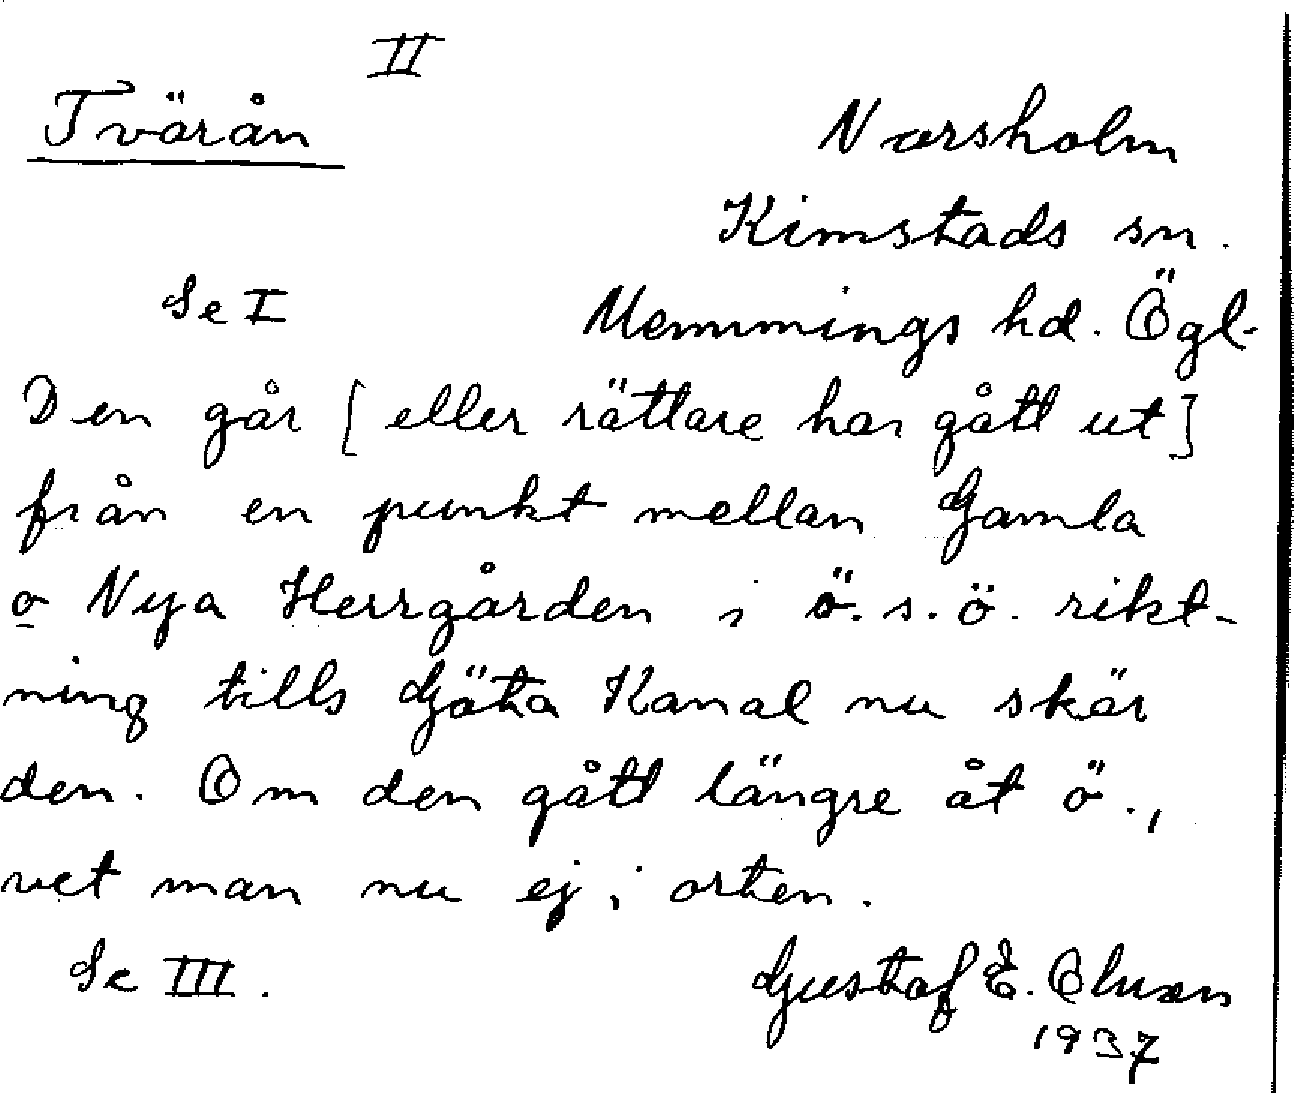 II
Tvärån
Norsholm
Kimstads sn.
Se I
Memmings hd. Ögl.
Den går [eller rättare har gått ut]
från en punkt mellan Gamla
o Nya Herrgården i ö.s.ö. rikt-
ning tills Göta Kanal nu skär
den. Om den gått längre åt ö.,
vet man nu ej i orten.
Se III.
Gustaf E.
1937